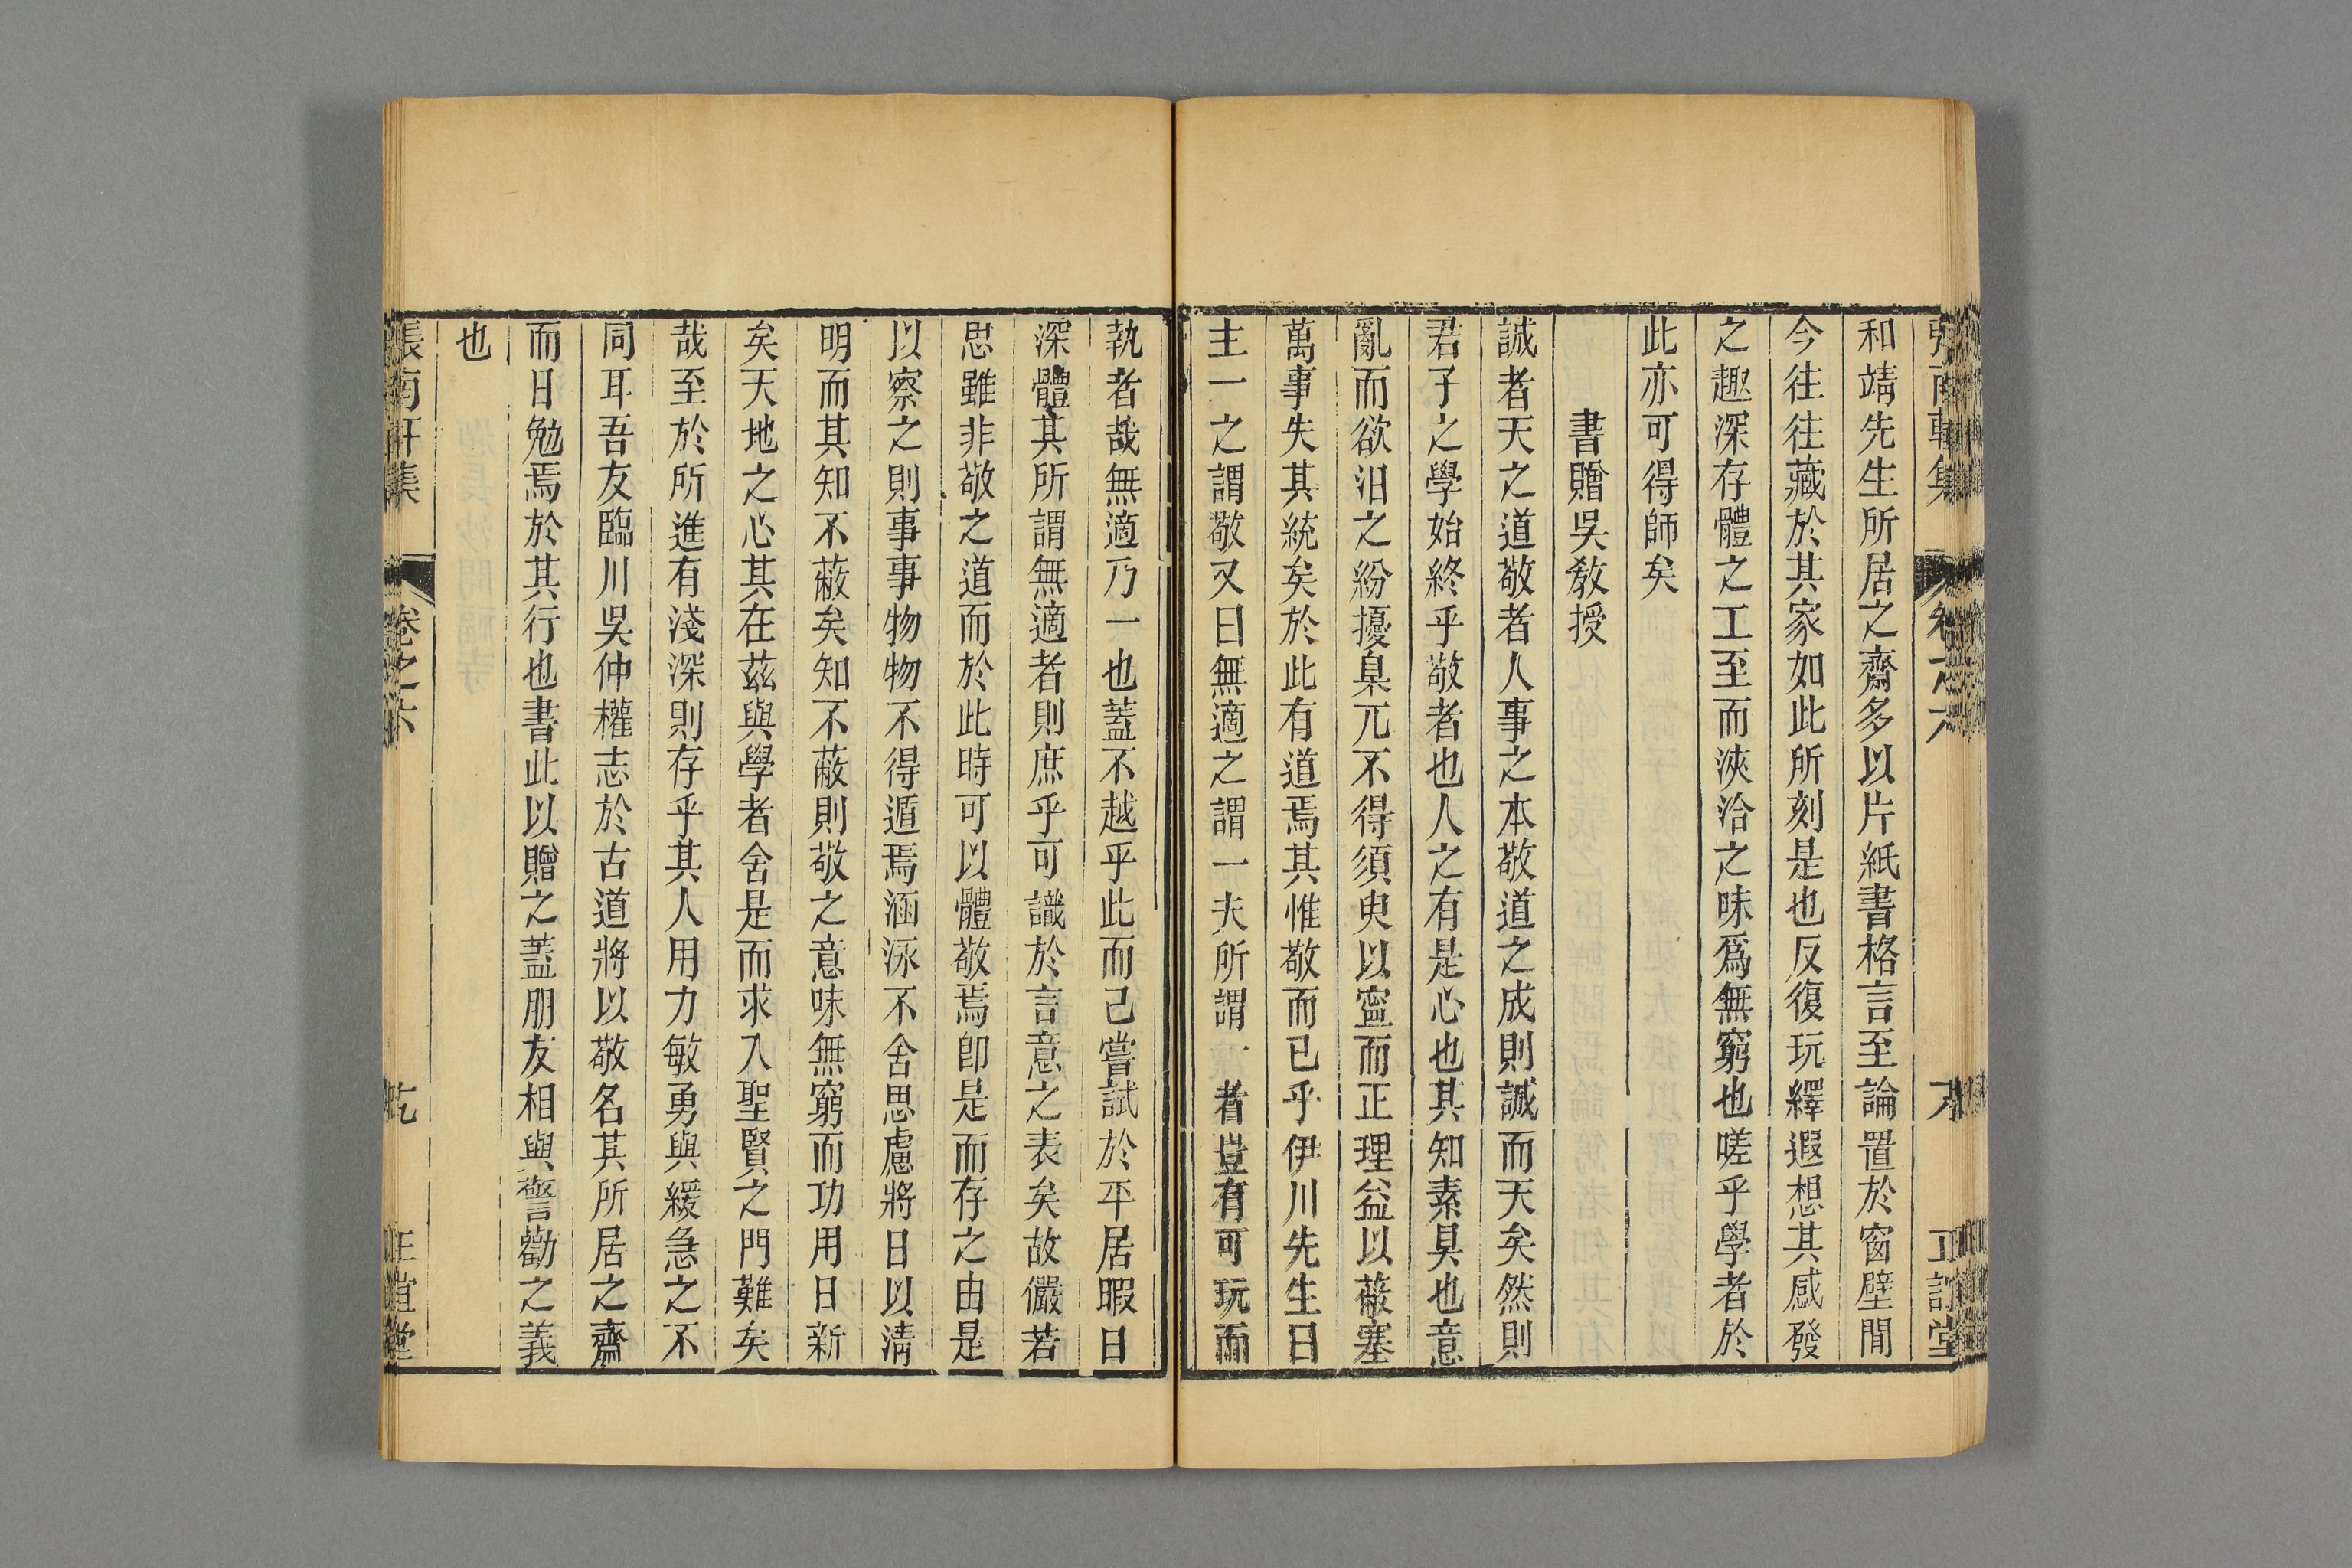 張南軒集 卷之六 正誼堂
和靖先生所居之齋多以片紙書格言至論置於窗壁閒
今往往藏於其家如此所刻是也反復玩繹遐想其感發
之趣深存體之工至而浹洽之味爲無窮也嗟乎學者於
此亦可得師矣
書贈吳敎授
誠者天之道敬者人事之本敬道之成則誠而天矣然則
君子之學始終乎敬者也人之有是心也其知素具也意
亂而欲汨之紛擾臬兀不得須臾以寧而正理益以蔽塞
萬事失其統矣於此有道焉其惟敬而已乎伊川先生曰
主一之謂敬又曰無適之謂一夫所謂一者豈有可玩而
執者哉無適乃一也蓋不越乎此而已嘗試於平居暇日
深體其所謂無適者則庶乎可識於言意之表矣故儼若
思雖非敬之道而於此時可以體敬焉卽是而存之由是
以察之則事事物物不得遁焉涵泳不舍思慮將日以淸
明而其知不蔽矣知不蔽則敬之意味無窮而功用日新
矣天地之心其在茲與學者舍是而求入聖賢之門難矣
哉至於所進有淺深則存乎其人用力敏勇與緩急之不
同耳吾友臨川吳仲權志於古道將以敬名其所居之齋
而日勉焉於其行也書此以贈之蓋朋友相與警勸之義
也
張南軒集 卷之六 正誼堂